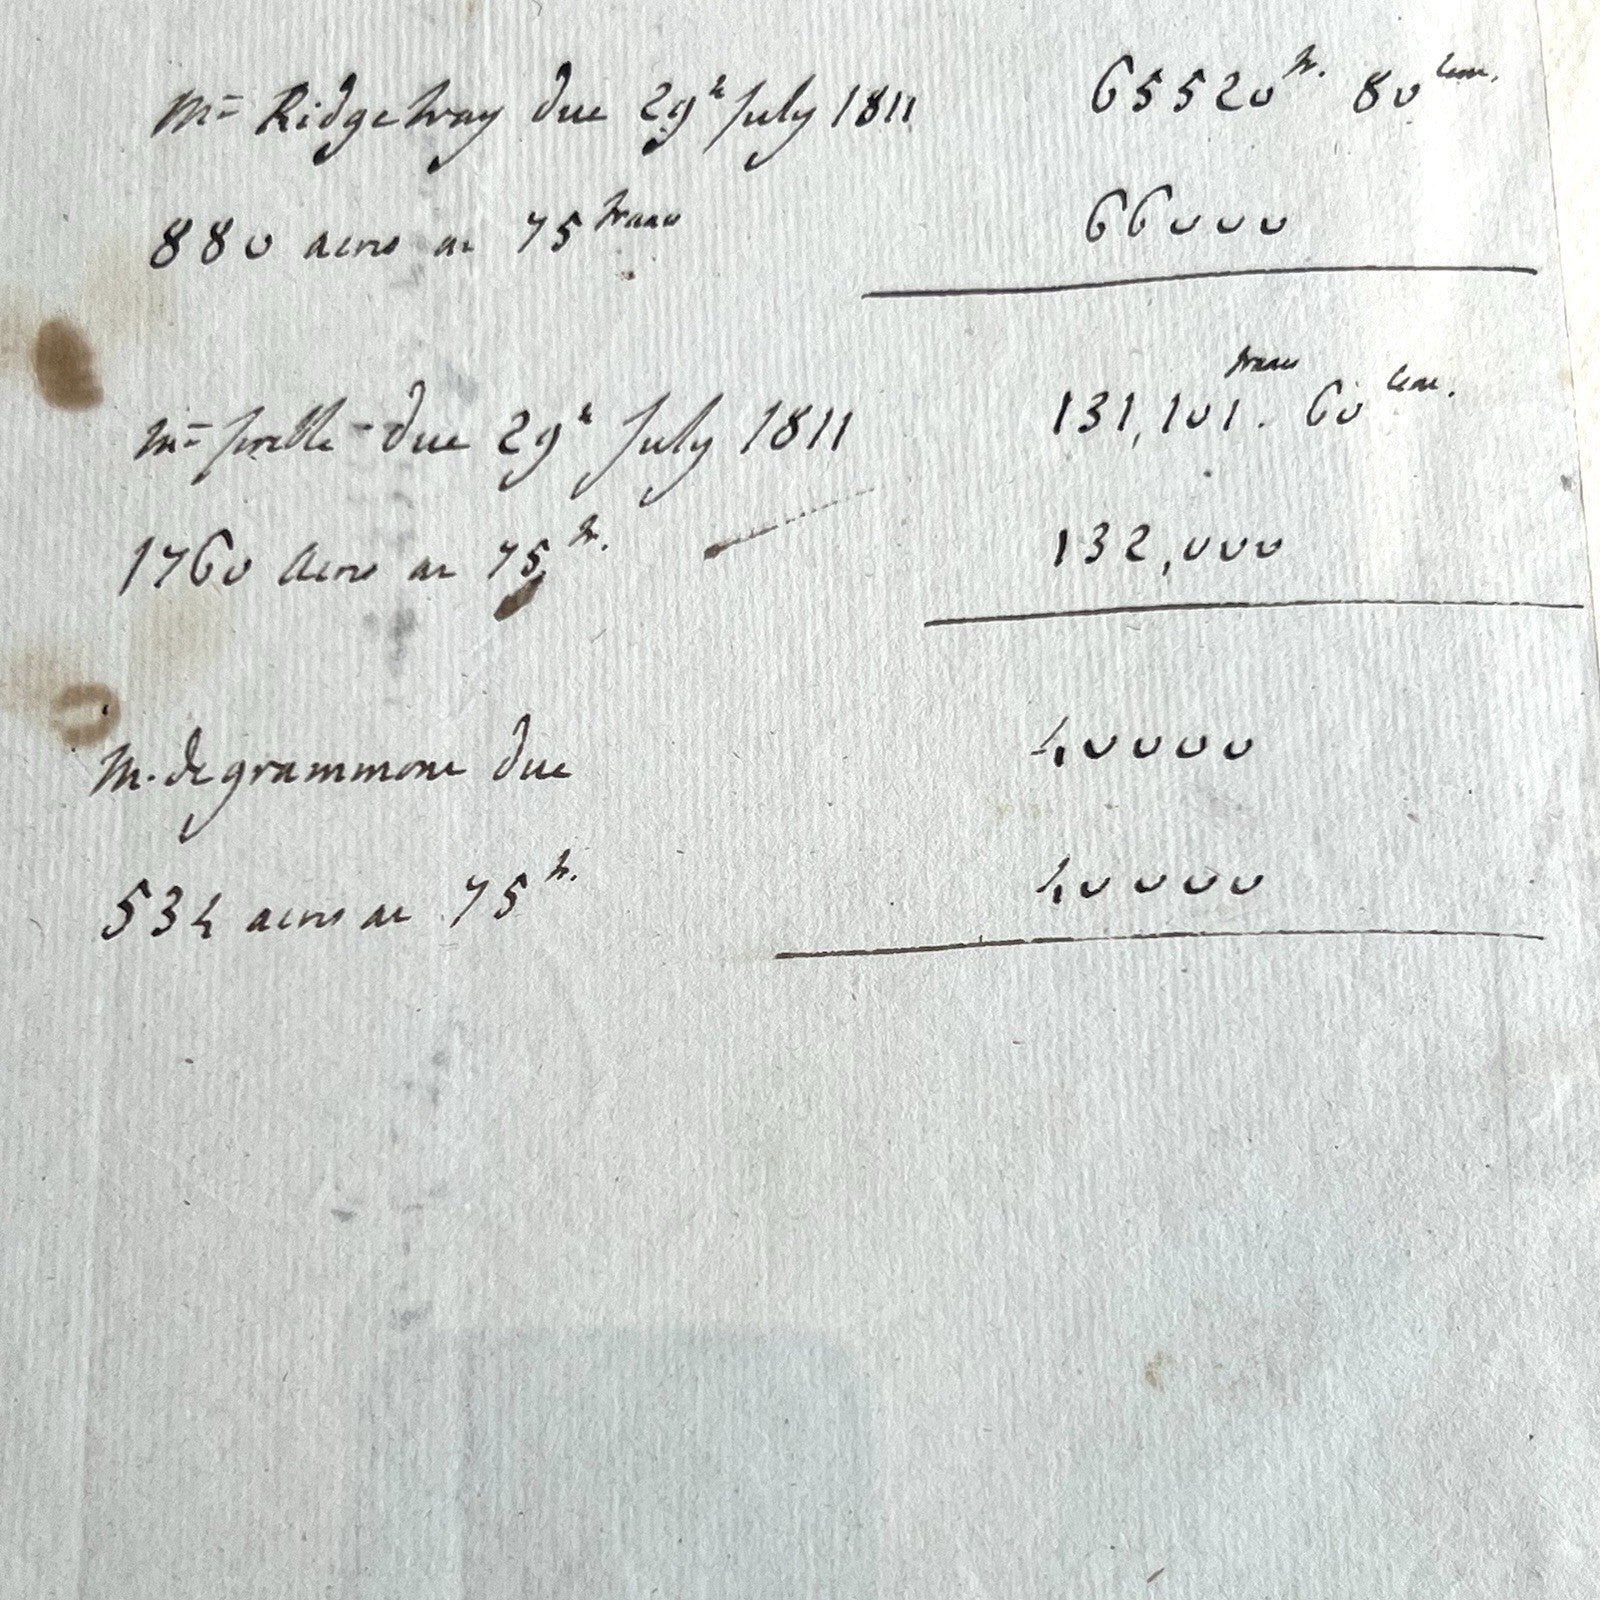 M= Ridgeway due 29th July 1811 65520 fr. 80 Cent.
880 acres at 75 francs 66000
M= due 29th July 1811 131,101 francs . 60 Cent.
1760 Acres at 75 fr. 132,000
M. de grammont due 40000
534 acres at 75 fr. 40000